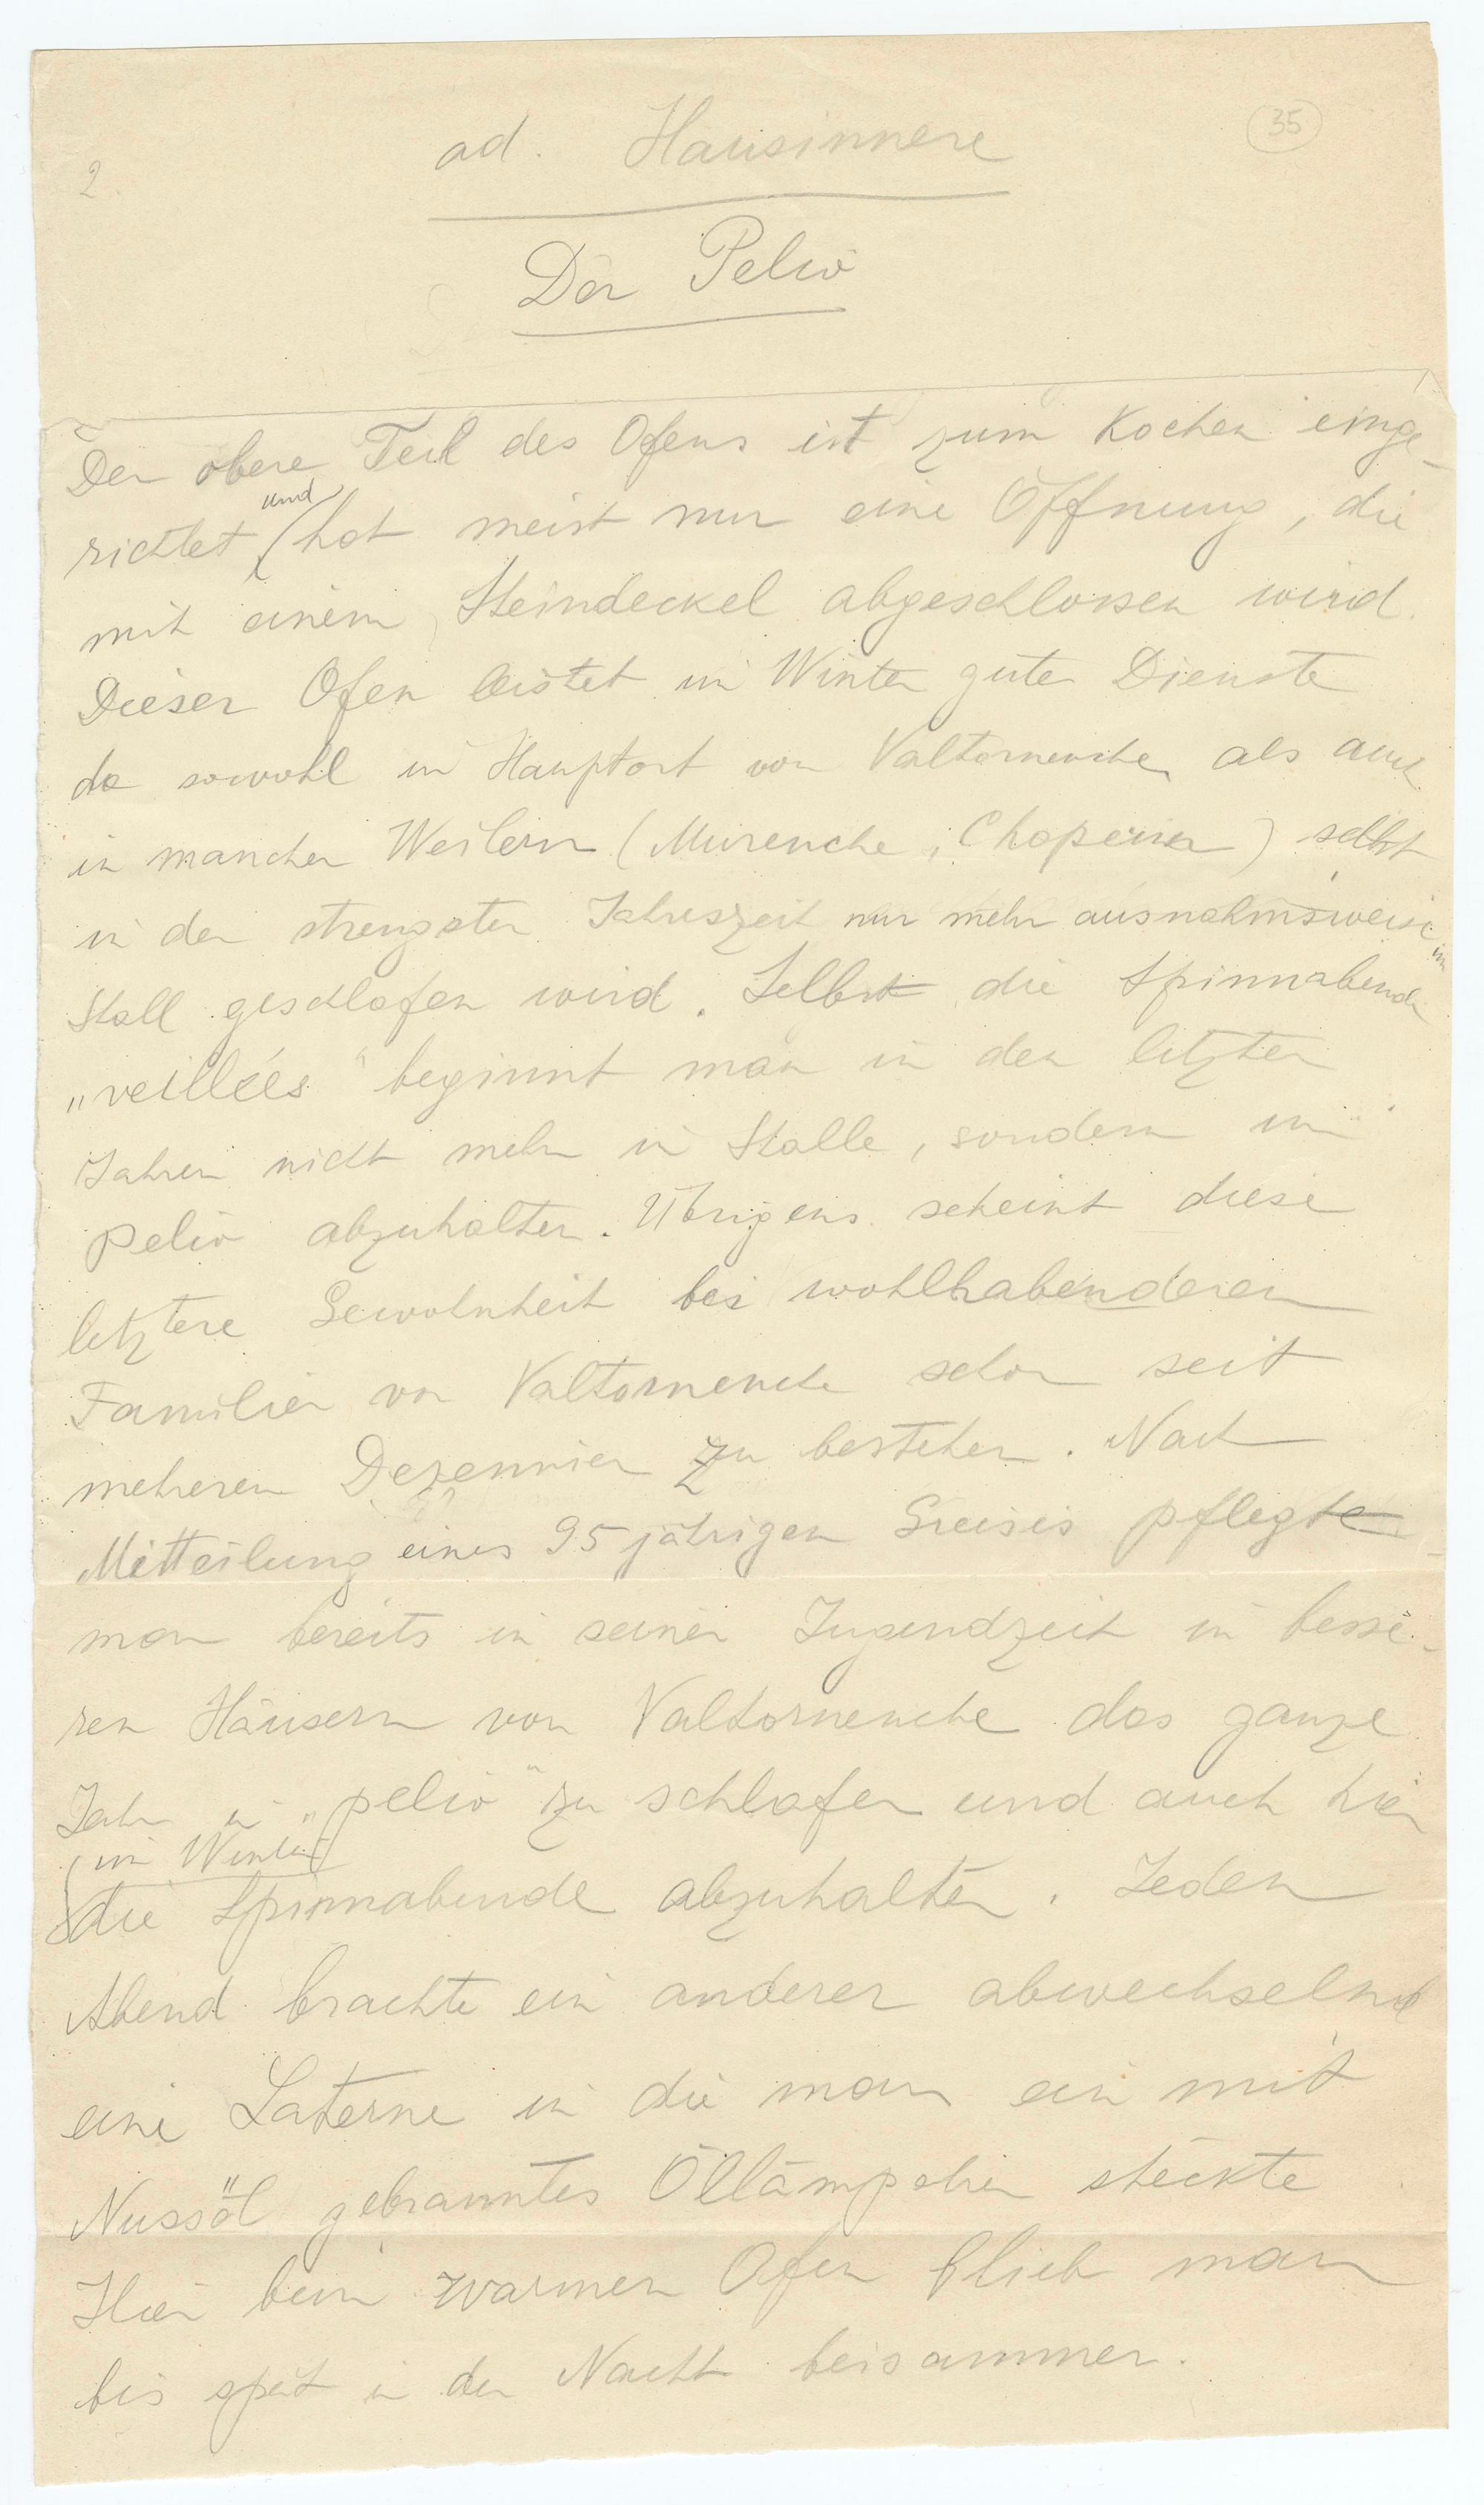 35
2.
ad. Hausinnere
Der Peliö
Der obere Teil des Ofens ist zum Kochen einge-
richtet und hat meist nur eine Öffnung, die
mit einem Steindeckel abgeschlossen wird.
Dieser Ofen leistet im Winter gute Dienste
da sowohl im Hauptort von Valtornenche als auch
in manchen Weilern (Murenche, ) selbst
in der strengsten Jahreszeit nur mehr ausnahmsweise im
Stall geschlafen wird. Selbst die Spinnabende
„veillées" beginnt man in den letzten
Jahren nicht mehr im Stalle, sondern im
peliö abzuhalten. Übrigens scheint diese
letztere Gewohnheit bei wohlhabenderen
Familien von Valtornenche schon seit
mehreren Dezennien zu bestehen. Nach
Mitteilung eines 95 jährigen Greises pflegte
man bereits in seiner Jugendzeit in besse-
ren Häusern von Valtornenche das ganze
Jahr im „peliö" zu schlafen und auch hier
im Winter
die Spinnabende abzuhalten. Jeden
Abend brachte ein anderer abwechselnd
eine Laterne in die man ein mit
Nussöl gebranntes Öllämpchen steckte
Hier beim warmen Ofen blieb man
bis spät in der Nacht beisammen.